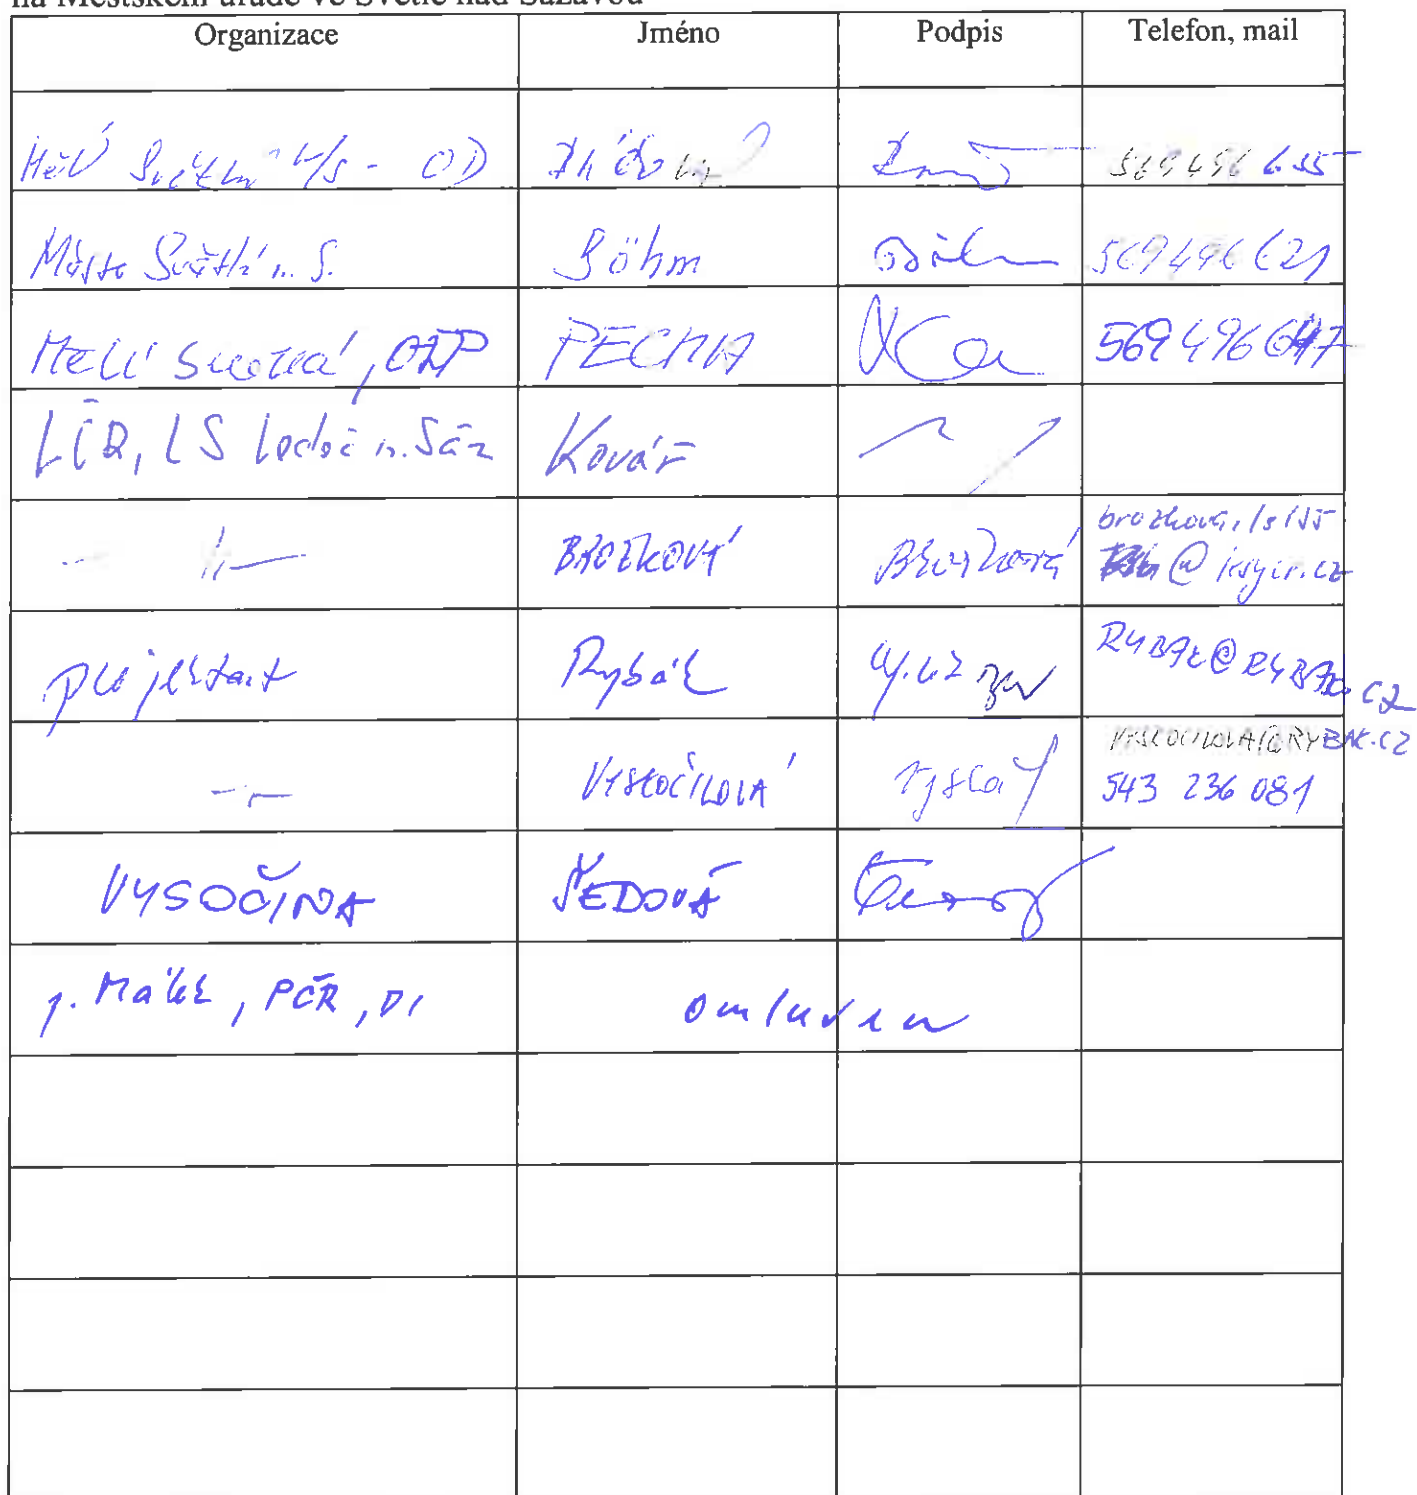 na Městském úřadě ve Světlé nad Sázavou
Organizace Jméno Podpis Telefon, mail
MěÚ Světlá n/S - OD 569 496 655
Město Světlá n. S. Böhm 569496621
MěÚ Světlá, OŽP PECHA 569 496 647
LČR, LS Ledeč n. Sáz Kovář
-- " -- BROŽKOVÁ Brožková
@lesycr.cz
projektant Rybák RYBAK@RYBAK.CZ
-- " -- VYSKOČILOVÁ VYSKOCILOVA@RYBAK.CZ
543 236 081
VYSOČINA ŠEDOVÁ
p. Málek, PČR, DI omluven